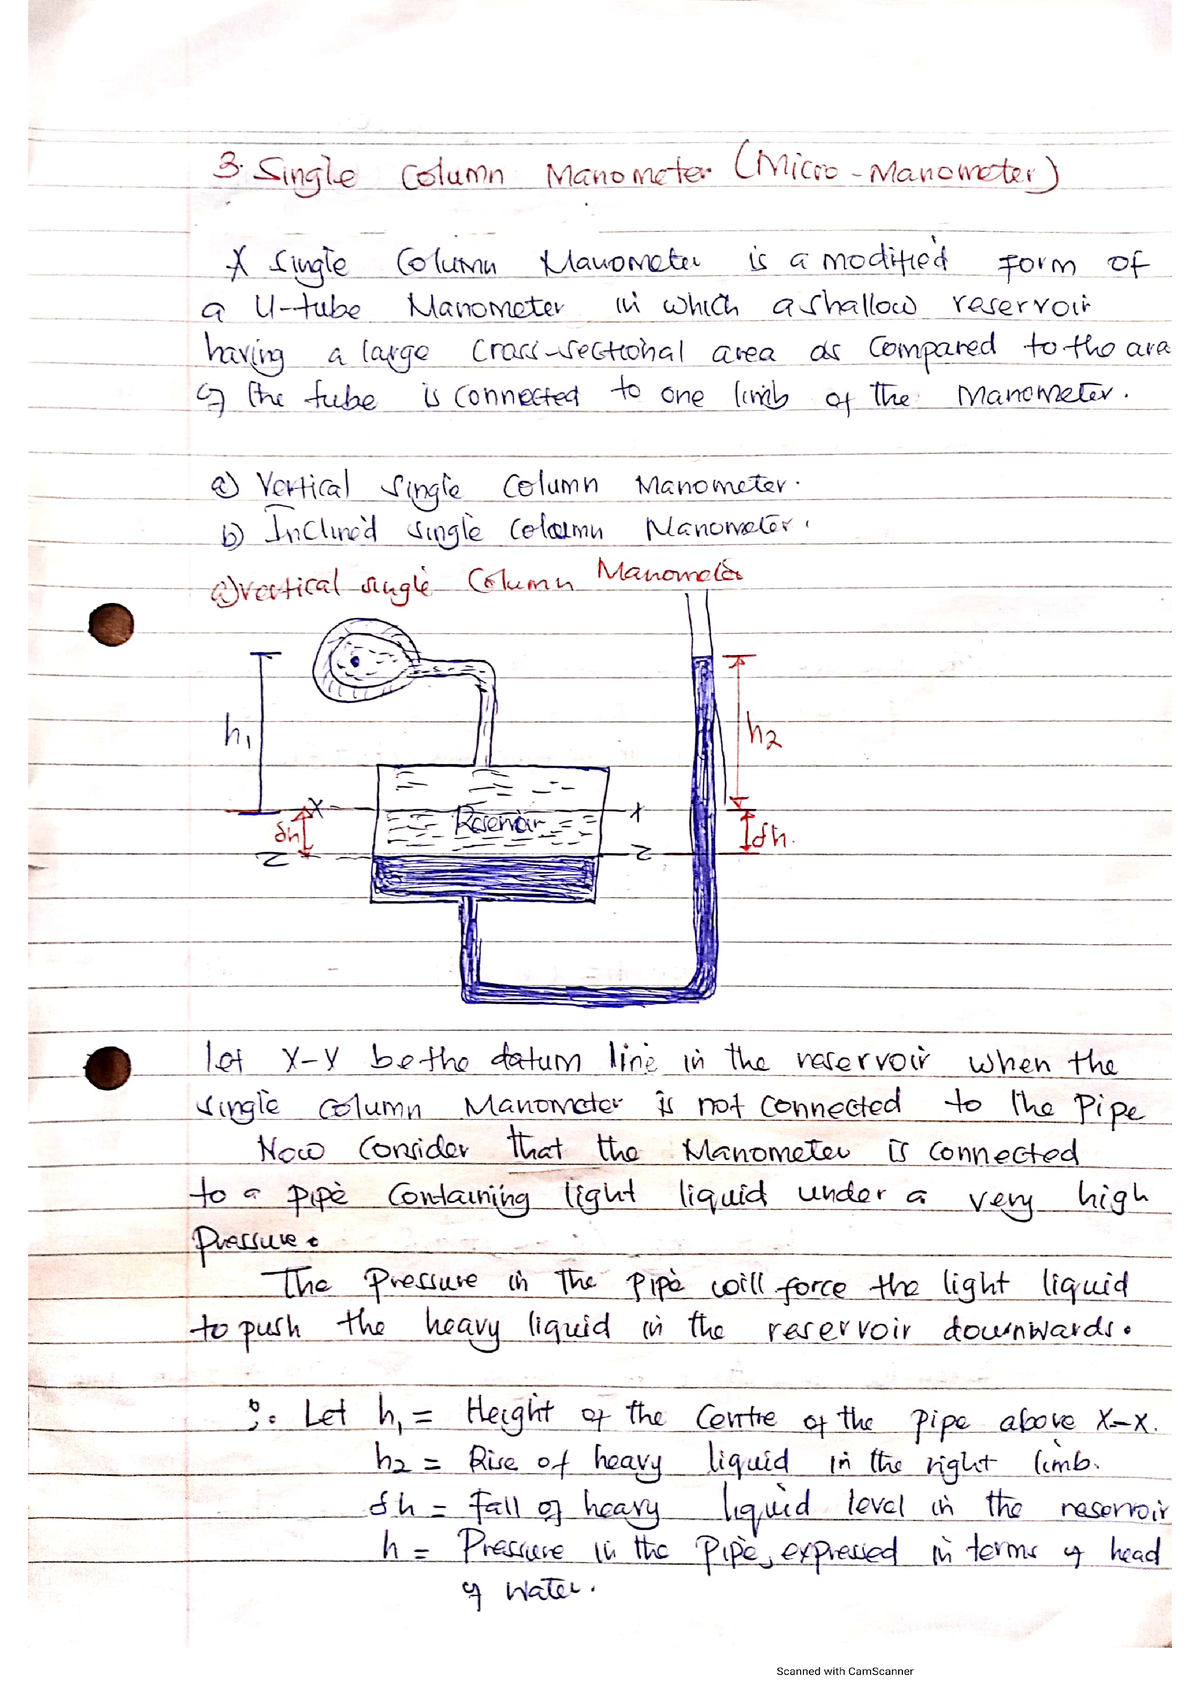 3. Single Column Manometer (Micro-Manometer)
A Single Column Manometer is a modified form of
a U-tube Manometer in which a shallow reservoir
having a large cross-sectional area as compared to the area
of the tube is connected to one limb of the Manometer.
a) Vertical single column Manometer.
b) Inclined single column Manometer.
a) vertical single column Manometer
h1
h2
X
X
Reservoir
δh
δh.
Z
Z
let X-Y be the datum line in the reservoir when the
single column Manometer is not connected to the pipe
Now consider that the Manometer is connected
to a pipe containing light liquid under a very high
pressure.
The pressure in the pipe will force the light liquid
to push the heavy liquid in the reservoir downwards.
Let h1 = Height of the centre of the pipe above X-X.
h2 = Rise of heavy liquid in the right limb.
δh = fall of heavy liquid level in the reservoir
h = Pressure in the pipe, expressed in terms of head
of water.
Scanned with CamScanner